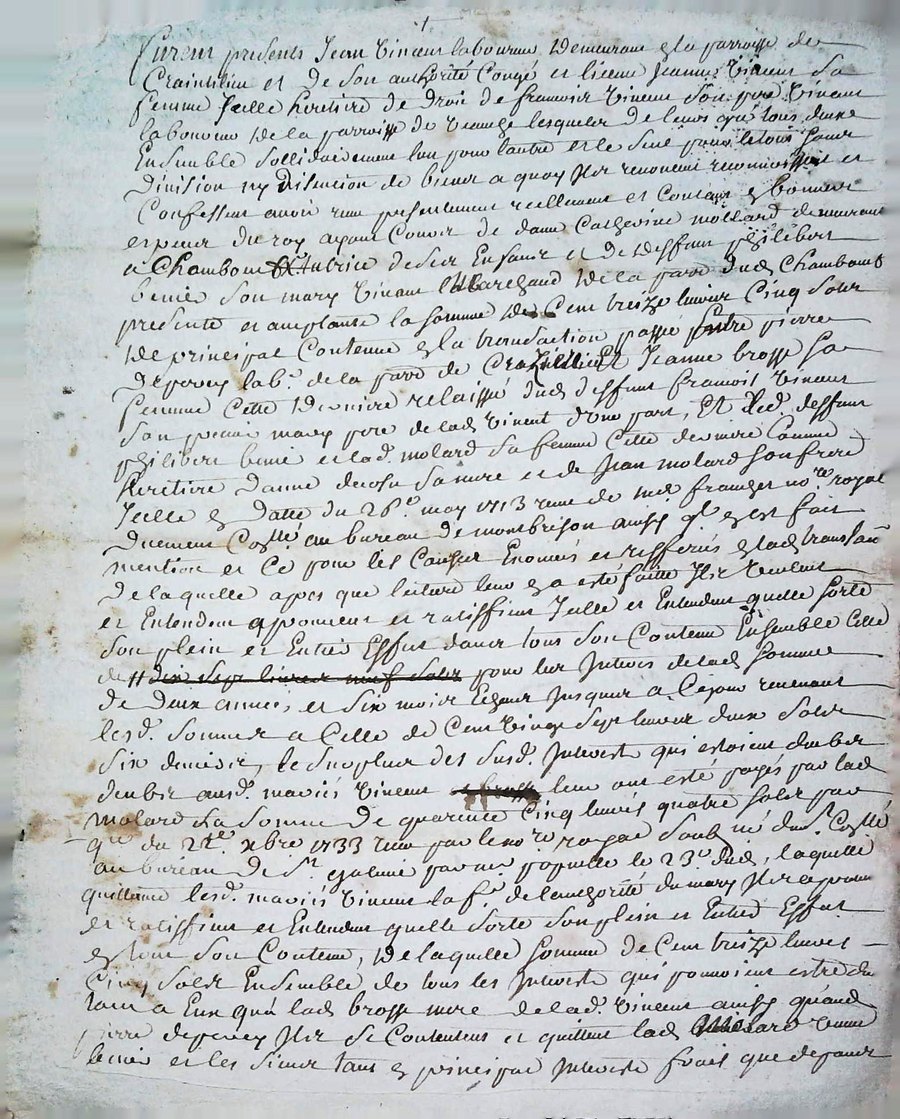 furent presents Jean Vincent laboureur demeurant en la parroisse de
Craintilieu et de son authorité Congé et licence Jeanne Vincent Sa
femme Jcelle heritiere de droit de francois Vincent Son pere Vivant
laboureur de la parroisse de lesquels de leurs gré tous deux
Ensemble Sollidairement lun pour lautre et le Seul pour le tous Sans
division ny discution de biens a quoy Jls renoncent reconnoissent et
Confessent avoir receu presentement reellement et Contant En bonnes
especes du roy ayant Cours de dame Catherine mollard demeurant
a Chambout tutrice de Ses Enfans et de deffunt philibert
benié son mary Vivant Marchand de la parr dud Chambout
presente et aceptante la Somme de Cent treize livres Cinq Sols
de principal Contenue En la transaction passé Entre pierre
lab. de la parr de et Jeanne brosse Sa
femme Cette derniere relaissé dud deffunt francois Vincent
Son premier mary pere de lad Vincent d'une part, Et led. deffunt
philibert benié et lad. molard Sa femme Cette derniere Comme
heritiere danne Sa mere et de Jean molard Son frere
Jcelle En datte du 26e may 1713 receue de me franges nore royal
duement Coollé au bureau de montbrison ainsy ql. en est fait
mention et Ce pour les Causes Enoncés et refferés En lad transaon
de laquelle apres que lecture leur En a esté faitte Jls Veulent
et Entendent approuvent et ratiffient Jcelle et Entendent quelle Sorte
Son plein et Entier Effet dans tous Son Contenu Ensemble Celle
de dix Sept livres neuf Sols pour les Jnterets de lad Somme
de deux années et Six mois Echeus Jusques a Cejour revenant
lesd. Sommes a Celle de Cent Vingt Sept livres deux Sols
Six deniers, le Surplus des Susd. Jnterest qui estoient deubs
deubs ausd. mariés Vincent leur ont esté payés par lad
molard la Somme de quarente Cinq livres quatre Sols par
qce du 22e. xbre 1733 receu par le nore royal Soubs né Coollé
au bureau de St. galmié par me populle le 23e dud, laquelle
quittance lesd. mariés Vincent la fe. de lauthorité du mary Jls
et ratiffient et Entendent quelle Sorte Son plein et Entier Effet
En tout Son Contenu, de laquelle Somme de Cent treize livres
Cinq Sols Ensemble de tous les Jnterests qui pouvoient estre du
tant a Eux qu'a lad brosse mere de lad. Vincent ainsy quaud
pierre Jls Se Contentent et quittent lad molard Veuve
benié et les Siens tant En principal Jnterests frais que depans